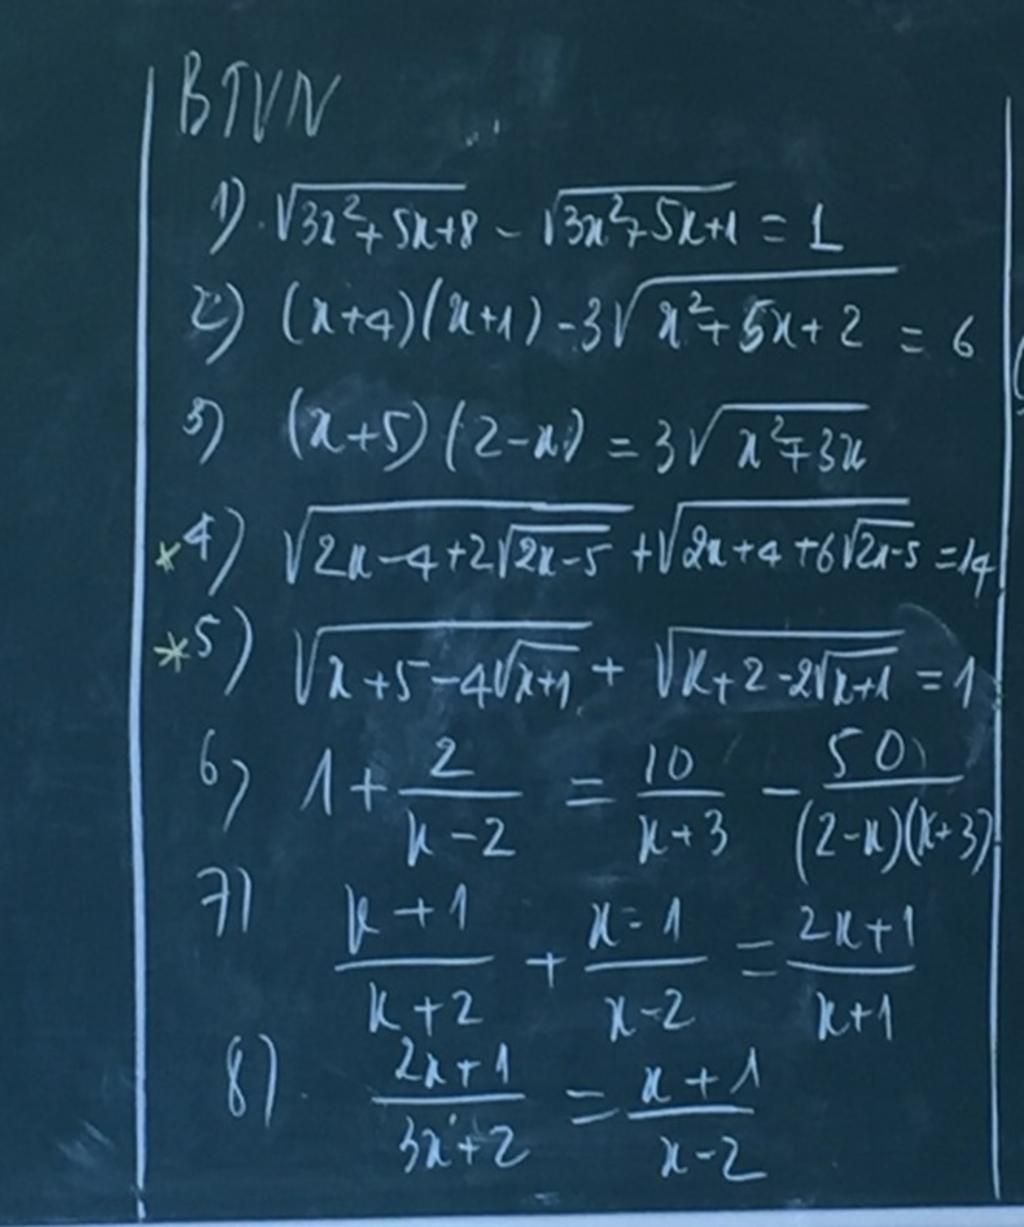 BTVN
1) √(3x²+5x+8) - √(3x²+5x+1) = 1
2) (x+4)(x+1) - 3√(x²+5x+2) = 6
3) (x+5)(2-x) = 3√(x²+3x)
*4) √(2x-4+2√(2x-5)) + √(2x+4+6√(2x-5)) = 14
*5) √(x+5-4√(x+1)) + √(x+2-2√(x+1)) = 1
6) 1 + 2/(x-2) = 10/(x+3) - 50/((2-x)(x+3))
7) (x+1)/(x+2) + (x-1)/(x-2) = (2x+1)/(x+1)
8) (2x+1)/(3x+2) = (x+1)/(x-2)